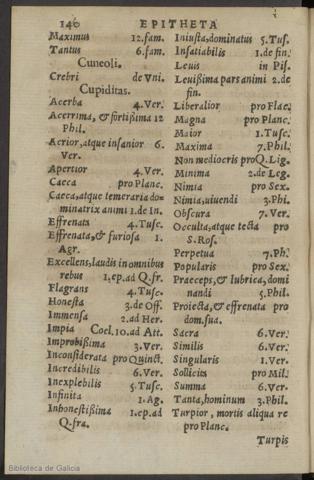 140 EPITHETA
Maximus 12.fam.
Tantus 6.fam.
Cuneoli.
Crebri de Vni.
Cupiditas.
Acerba 4.Ver.
Acerrima, & fortißima 12
Phil.
Acrior, atque insanior 6.
Ver.
Apertior 4.Ver.
Caeca pro Planc.
Caeca, atque temeraria do-
minatrix animi 1.de In.
Effrenata 4.Tusc.
Effrenata, & furiosa 1.
Agr.
Excellens, laudis in omnibus
rebus 1.ep.ad Q.fr.
Flagrans 4.Tusc.
Honesta 3.de Off.
Immensa 2.ad Her.
Impia Coel.10.ad Att.
Improbißima 3.Ver.
Inconsiderata pro Quinct.
Incredibilis 6.Ver.
Inexplebilis 5.Tusc.
Infinita 1.Ag.
Inhonestißima 1.ep.ad
Q.fra.
Iniusta, dominatus 5.Tus.
Insatiabilis 1.de fin.
Leuis in Pis.
Leuißima pars animi 2.de
fin.
Liberalior pro Flac.
Magna pro Planc.
Maior 1.Tusc.
Maxima 7.Phil.
Non mediocris pro Q.Lig.
Minima 2.de Leg.
Nimia pro Sex.
Nimia, uiuendi 3.Phi.
Obscura 7.Ver.
Occulta, atque tecta pro
S.Ros.
Perpetua 7.Ph.
Popularis pro Sex.
Praeceps, & lubrica, domi
nandi 5.Phil.
Proiecta, & effrenata pro
dom.sua.
Sacra 6.Ver.
Similis 6.Ver.
Singularis 1.Ver.
Sollicita pro Mil.
Summa 6.Ver.
Tanta, hominum 3.Phil.
Turpior, mortis aliqua re
pro Planc.
Turpis
Biblioteca de Galicia